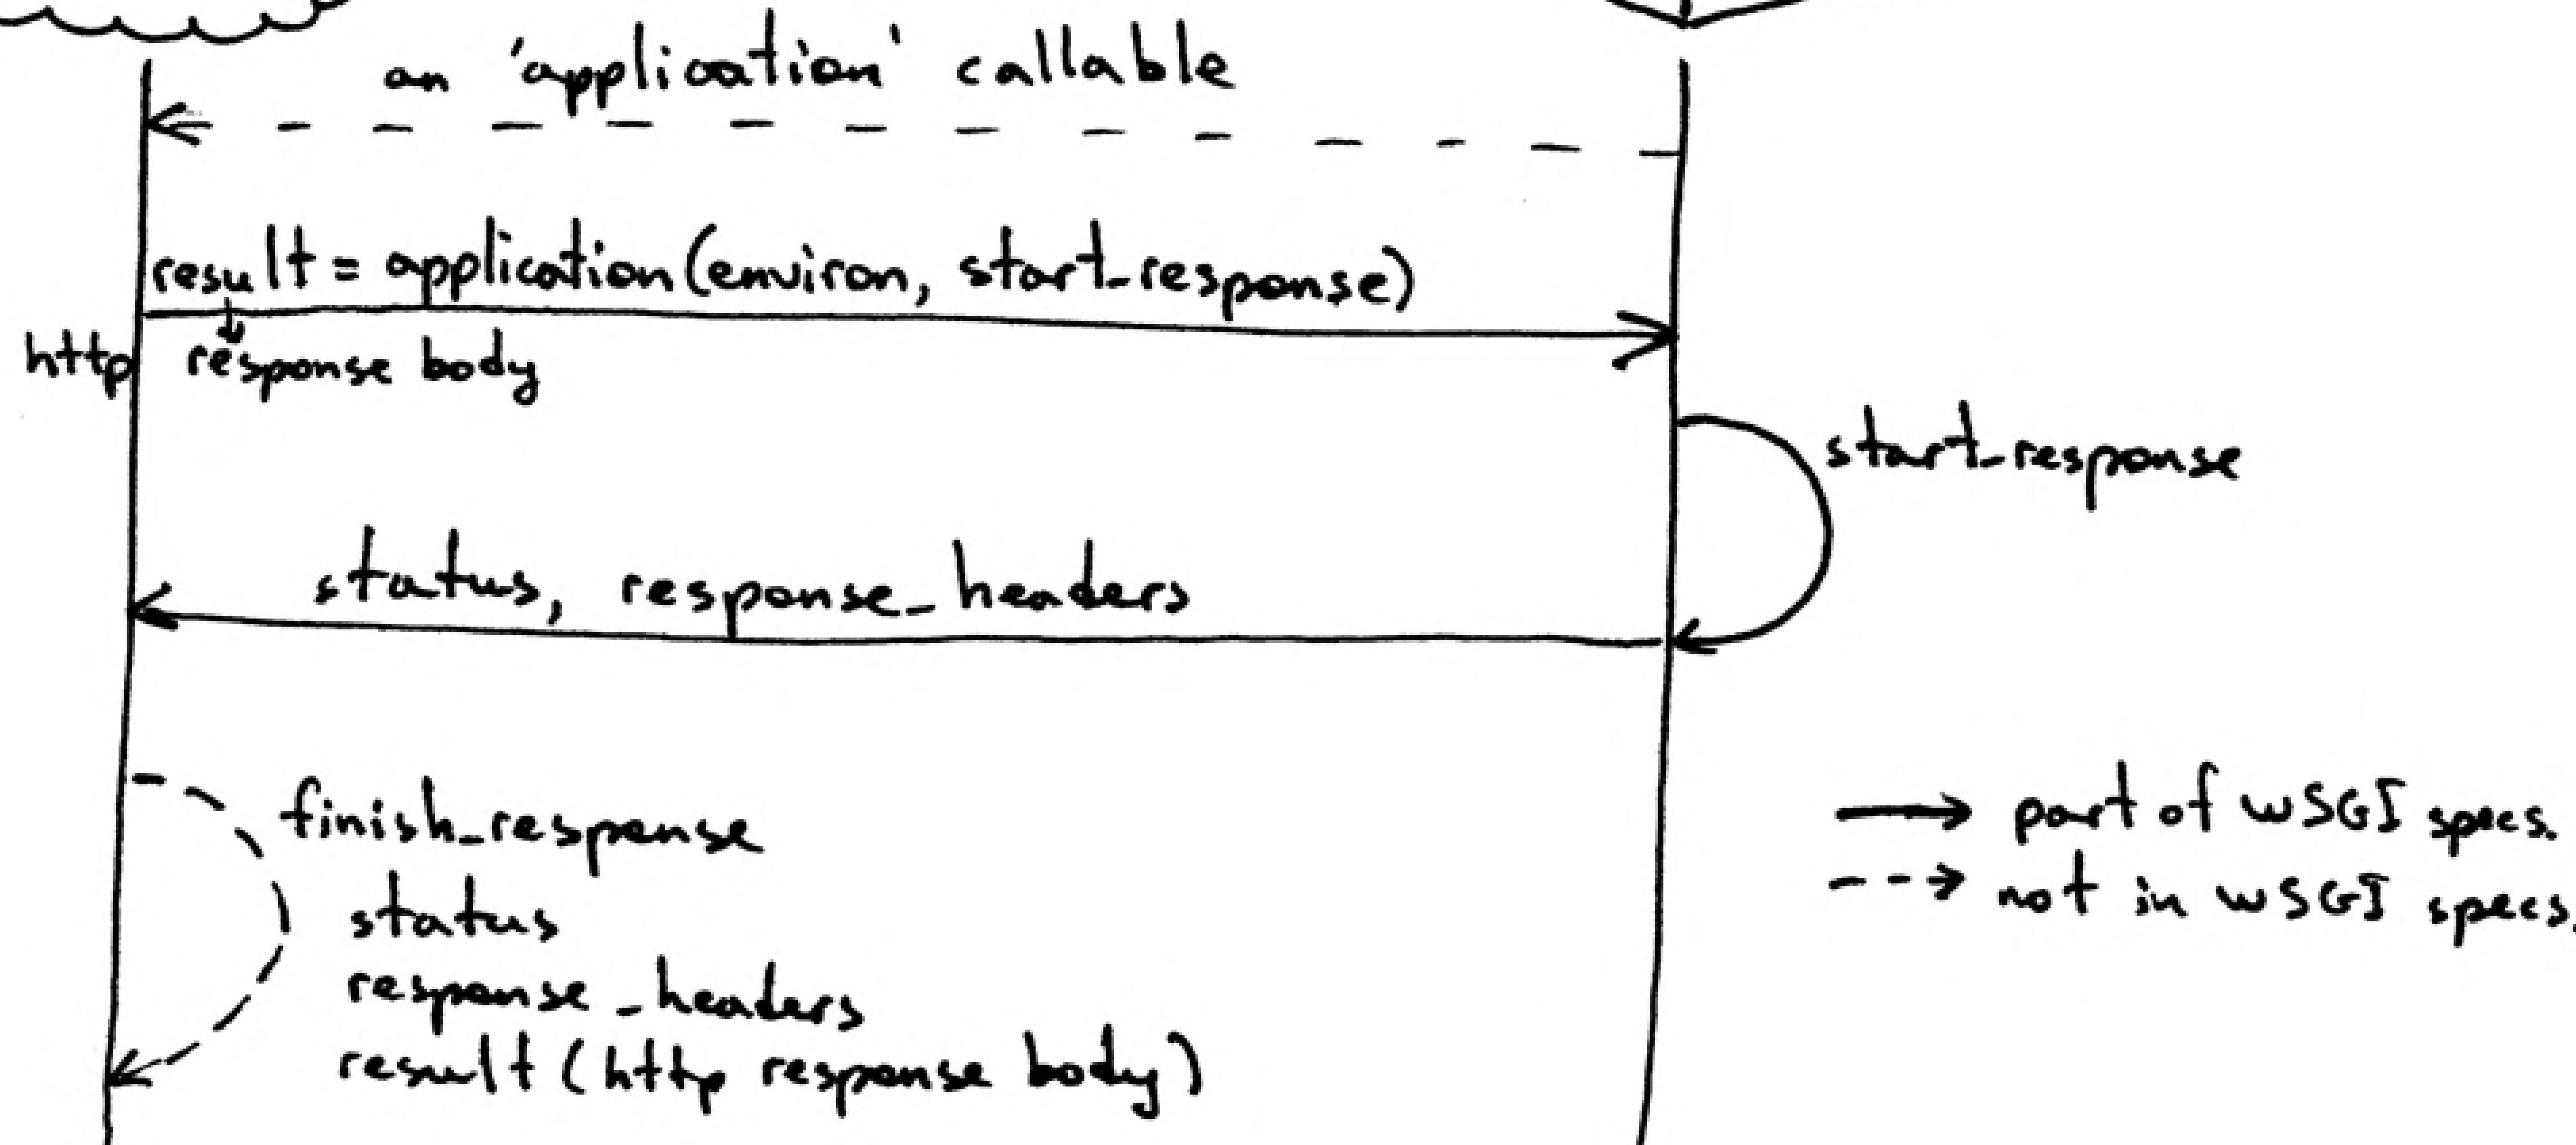 an 'application' callable
result = application(environ, start_response)
http response body
start_response
status, response_headers
finish_response
status
response_headers
result (http response body)
part of WSGI specs.
not in WSGI specs.